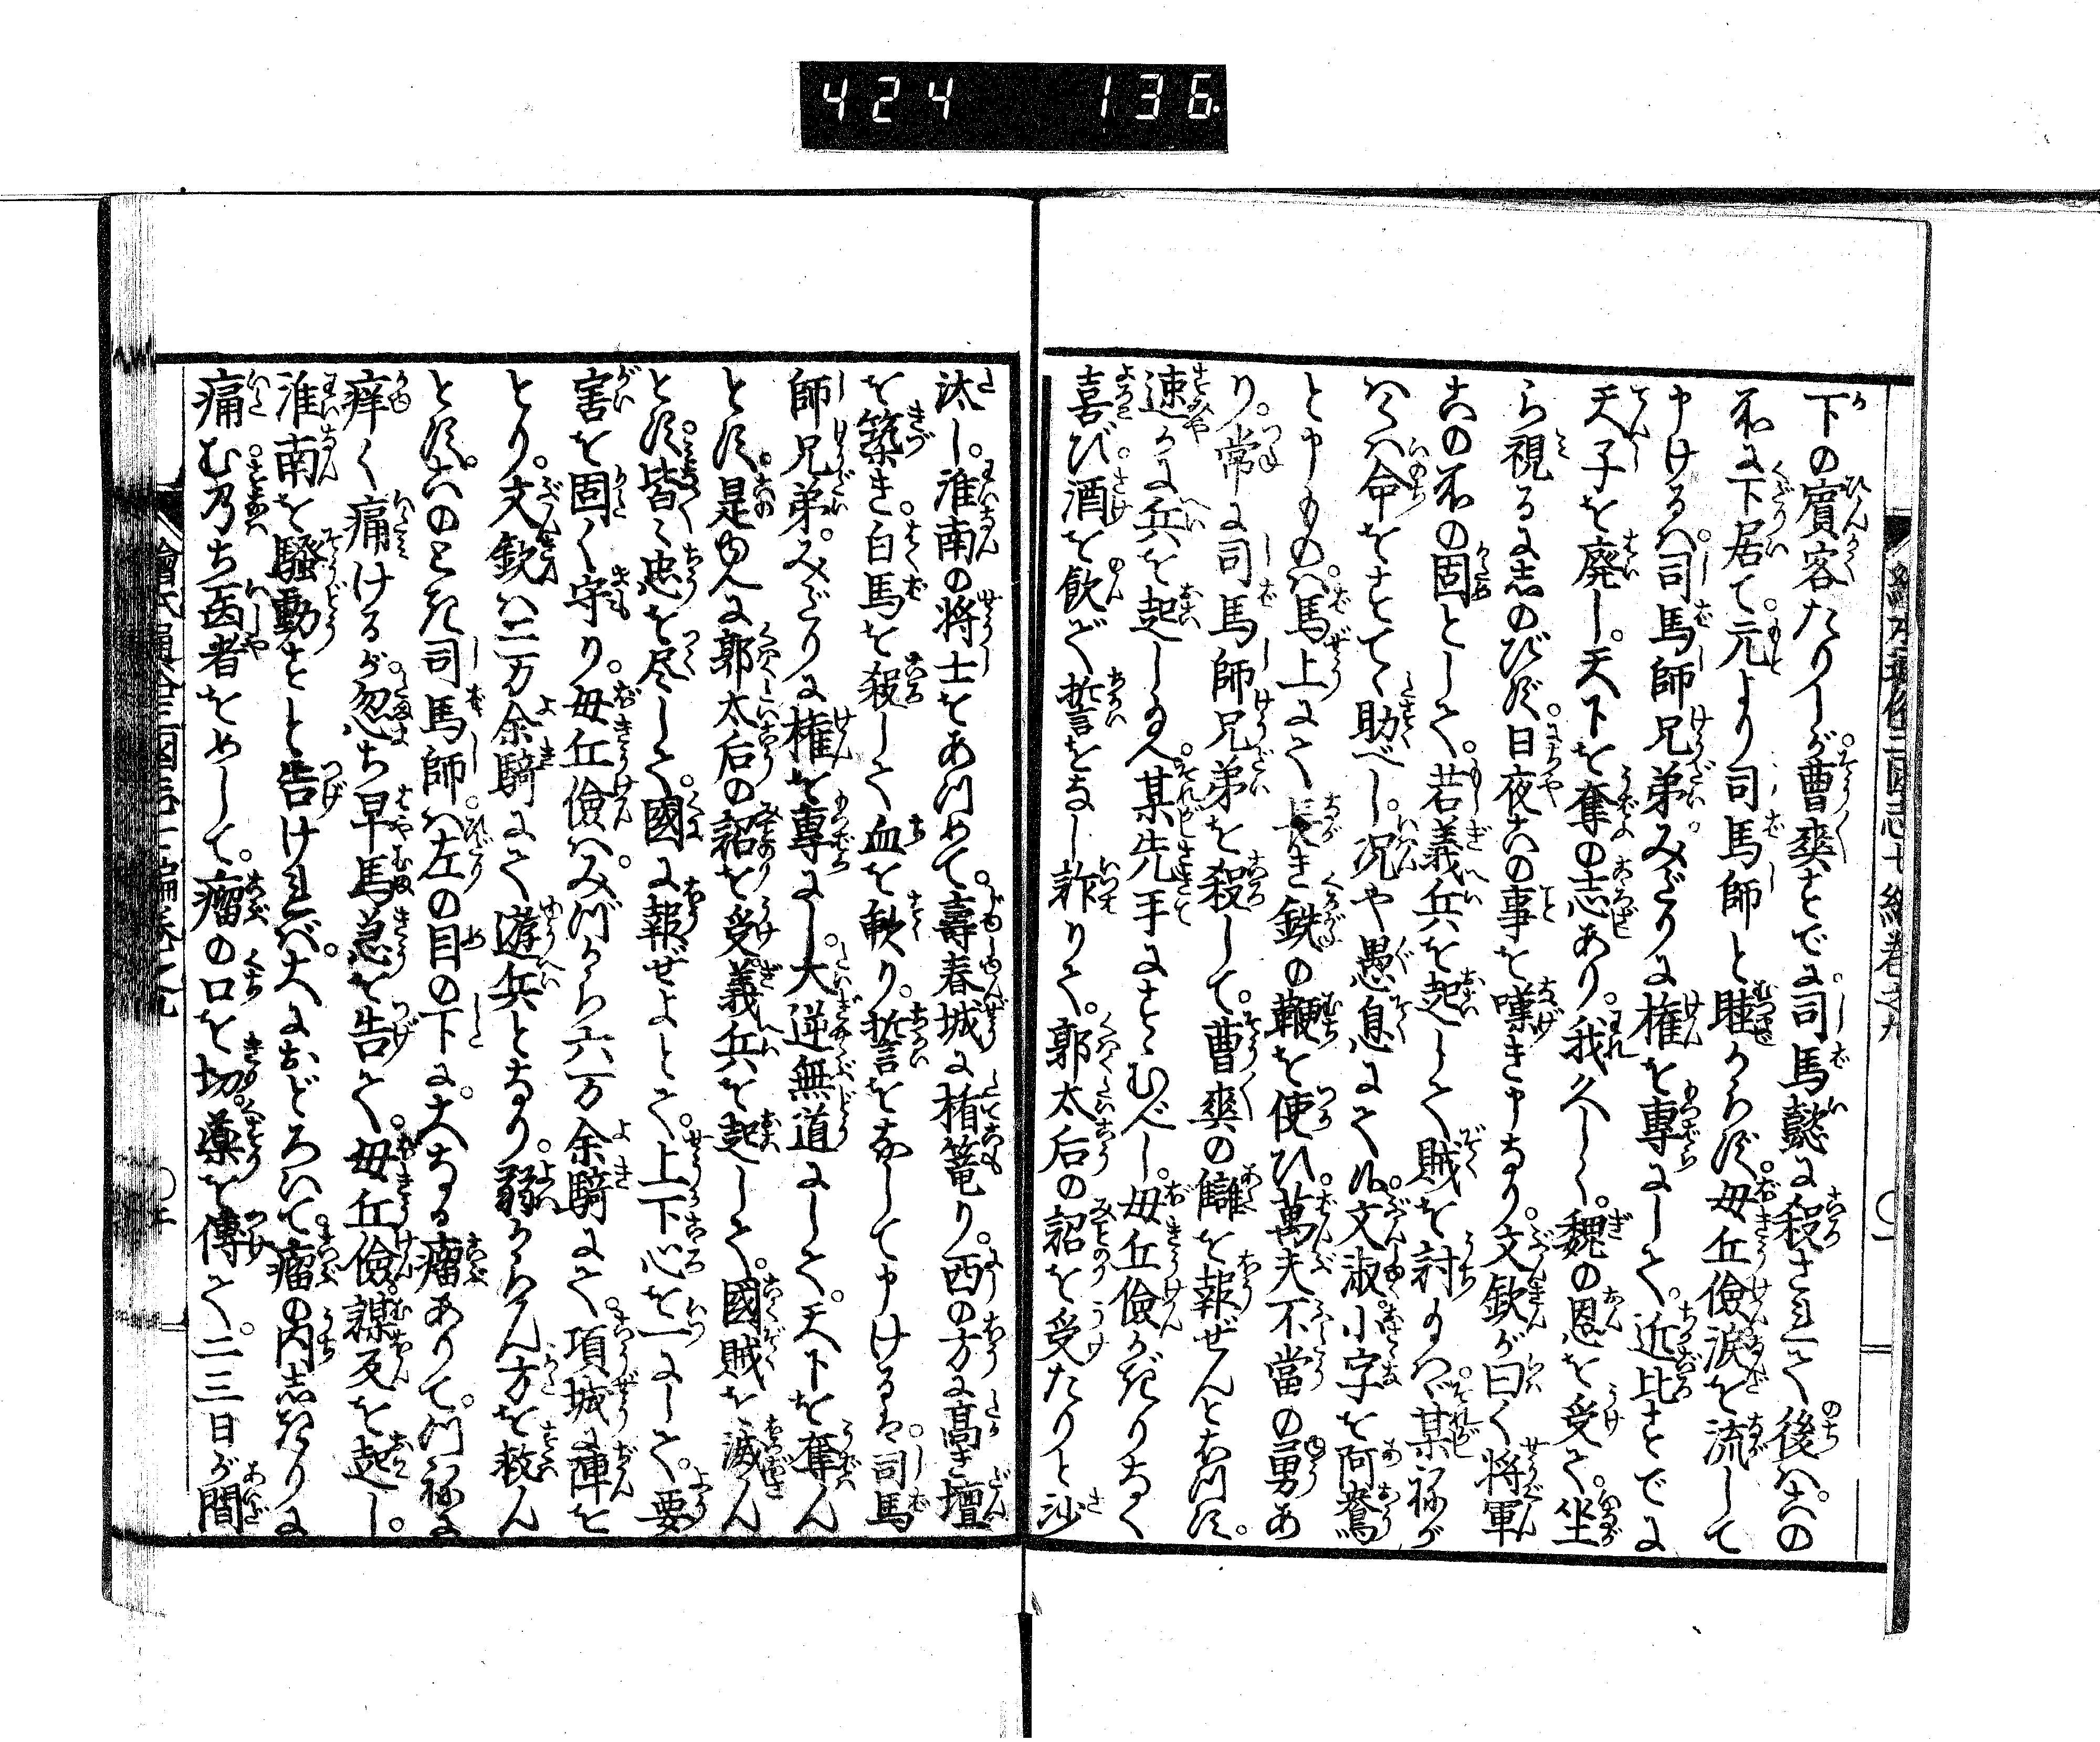 424 136
下の賓客たりしが。曹爽すでに。司馬懿に殺されて後ハ。この
不に下居て。元より司馬師と睦からず。毋丘儉涙を流して
申けるハ。司馬師兄弟。みだりに権を專にして。近比すでに
天子を廃し。天下を奪の志あり。我久しく。魏の恩を受て。坐
ら視るに忍のびず。日夜この事を嘆き申なり。文欽が曰く将軍
この不の固として。若義兵を起して賊を討玉ハヾ。某ねが
ハくハ命をすてゝ助べし。况や愚息にて候。文淑。小字を阿鴦
と申ものハ。馬上にて長き鉄の鞭を使ひ。萬夫不當の勇あ
り。常に司馬師兄弟を殺して。曹爽の讎を報ぜんとおつす。
速かに兵を起し玉ハヾ。某先手にすゝむべし。毋丘儉かぎりなく
喜び。酒を飲で誓をなし詐りて。郭太后の詔を受たりと沙
汰し。淮南の将士をあつめて。壽春城に楯篭り。西の方に高き壇
を築き。白馬を殺して血を軟り。誓をなして申けるハ。司馬
師兄弟。みだりに権を專にし。大逆無道にして。天下を奪ん
とす。是ゆへに郭太后の詔を受。義兵を起して。國賊を滅ん
とす。皆〻忠を尽して。國に報ぜよとて。上下心を一にして。要
害を固く守り。毋丘儉ハ。みづから六万余騎にて。項城に陣を
とり。文欽ハ二万余騎にて遊兵となり。弱からん方を救ん
とす。このとき司馬師ハ。左の目の下に。大なる瘤ありて。つねに
痒く痛けるが。忽ち早馬急を告て。毋丘儉。謀反を起し。
淮南を騒動すと告けれバ。大におどろいて。瘤の内しきりに
痛む。乃ち医者をめして。瘤の口を切。薬を傳て。二三日が間